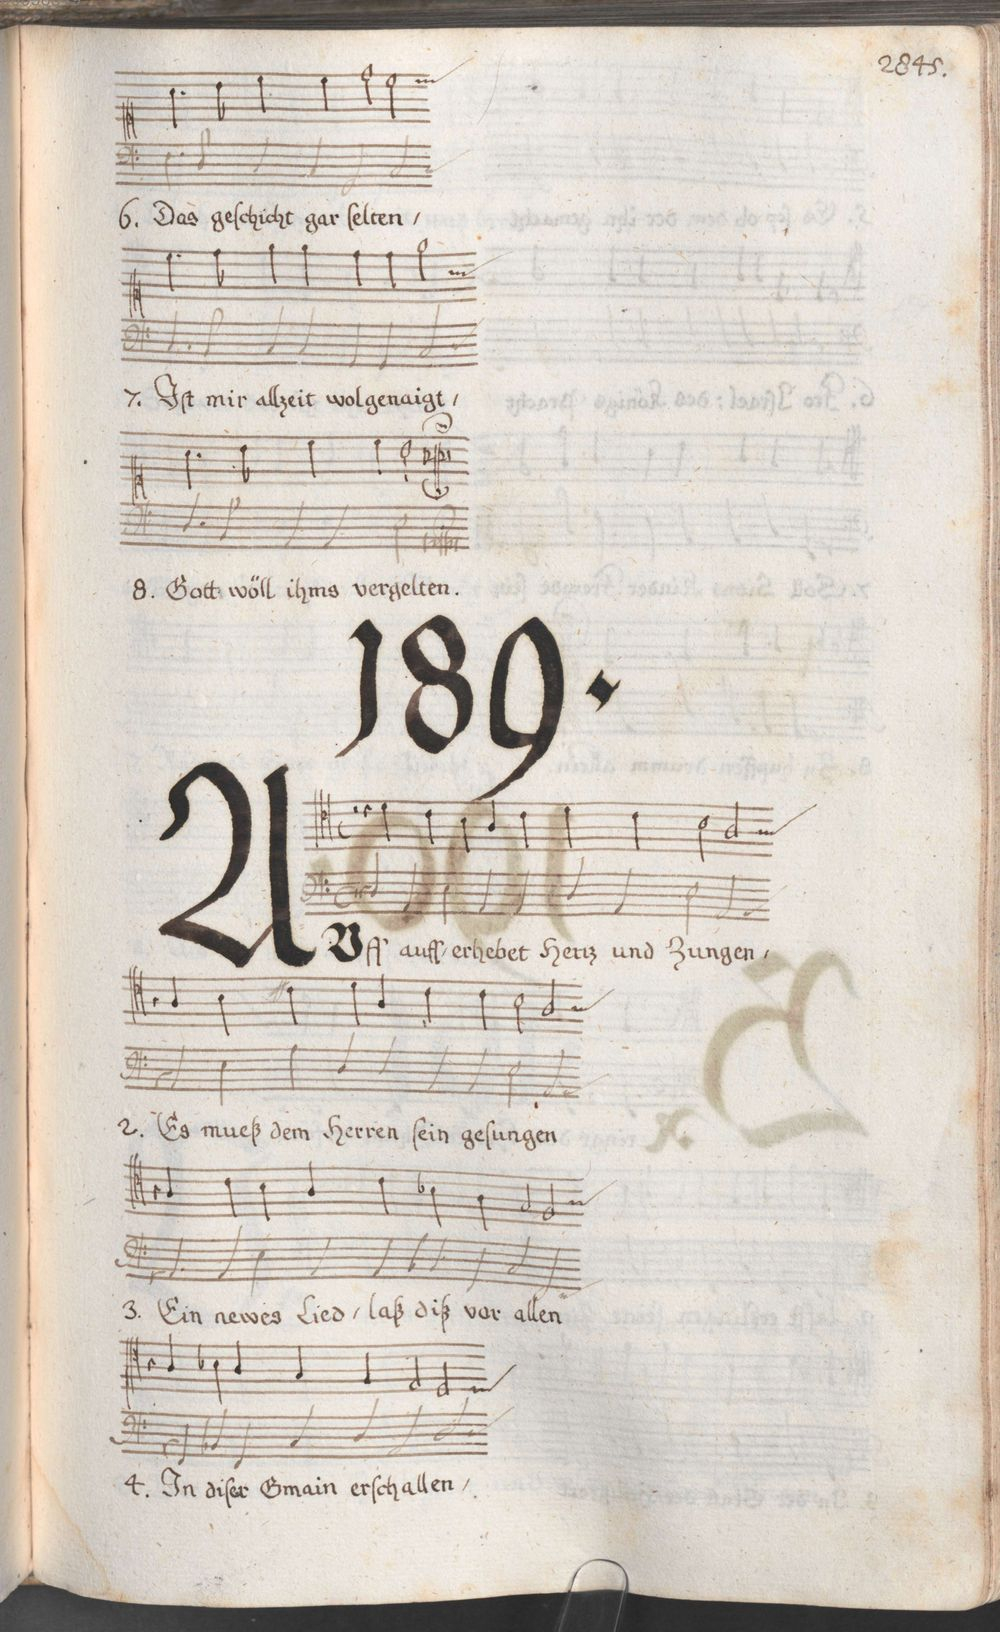 2845.
6. Das geschicht gar selten /
7. Ist mir allzeit wolgenaigt /
8. Gott wöll ihms vergelten.
189.
AUff auff / erhebet Hertz und Zungen /
2. Es mueß dem Herren sein gesungen
3. Ein newes Lied / laß diß vor allen
4. In diser Gmain erschallen /